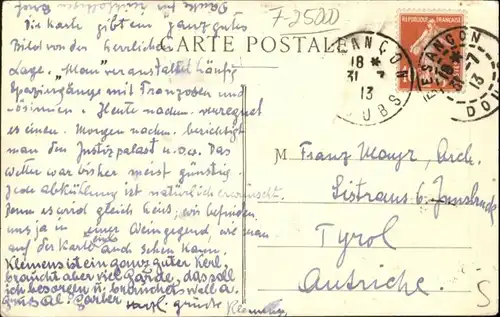 Die Karte gibt ein ganz gutes
F-25000
Bild von der herrlichen
CARTE POSTALE
Lage. "Man" veranstaltet häufig
Spaziergänge mit Franzosen und
-ösinnen. Heute nachm. verregnet
es einen. Morgen nachm. besichtigt
man den Justizpalast u.s.w. Das
Wetter war bisher meist günstig.
Jede Abkühlung ist natürlich erwünscht.
Denn es wird gleich heiss, wir befinden
uns ja in einer Weingegend, wie man
auf der Karte und sehen kann.
Klemens ist ein ganz guter Kerl,
braucht aber viel Garde, das soll
ich besorgen u. brauche
Gruss Al. Garber
Herzl. Grüsse Klemens
REPUBLIQUE FRANÇAISE
BESANÇON
18 *
31 -7
13
DOUBS
BESANÇON
18 *
-7
13
DOU
M Franz Mayr, Arch.
Sistrans b. Innsbruck
Tyrol
Autriche.
S